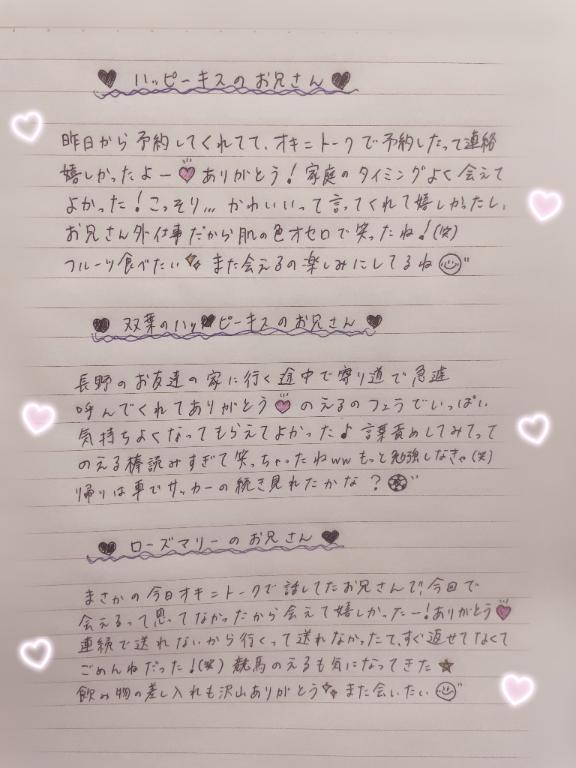 ♥ ハッピーキスのお兄さん ♥
昨日から予約してくれてて、オキニトークで予約したって連絡
嬉しかったよー♥ありがとう!家庭のタイミングよく会えて
よかった!こっそり... かわいいって言ってくれて嬉しかったし、
お兄さん外仕事だから肌の色オセロで笑ったね!(笑)
フルーツ食べたい また会えるの楽しみにしてるね
♥ 双葉のハッピーキスのお兄さん ♥
長野のお友達の家に行く途中で寄り道で急遽
呼んでくれてありがとう♥のえるのフェラでいっぱい
気持ちよくなってもらえてよかった♪言葉責めしてみてって
のえる棒読みすぎて笑っちゃったねwwもっと勉強しなきゃ(笑)
帰りは車でサッカーの続き見れたかな?
♥ ローズマリーのお兄さん ♥
まさかの今日オキニトークで話してたお兄さんで!今日で
会えるって思ってなかったから会えて嬉しかったー!ありがとう♥
連続で送れないから行くって送れなかったて、すぐ返せてなくて
ごめんねだった!(笑)競馬のえるも気になってきた★
飲み物の差し入れも沢山ありがとう また会いたい